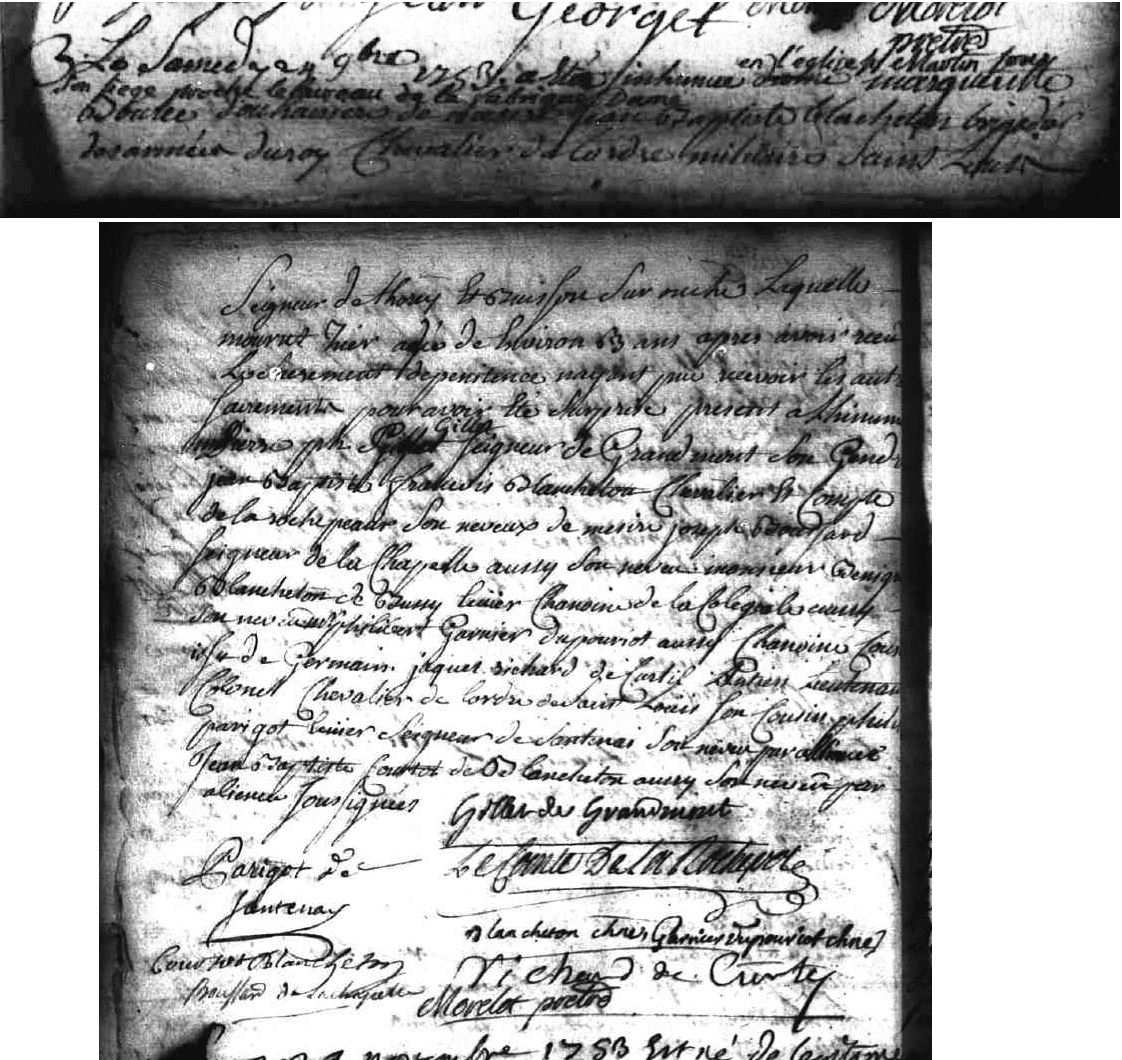 Georget Morelot
pretre
Le Samedy 24 9bre 1753 a été inhumée en l'église St Martin sous
son siege proche le bureau de la fabrique Dame marguerite
de messire Jean Baptiste Blancheton brigadier
des armées du roy Chevalier de lordre militaire Saint Louis
Seigneur de thorey Et Buisson Sur ouche Laquelle
mourut hier agée de Environ 63 ans apres avoir receu
Le Sacrement de penitence nayant pue recevoir les aut
Sacrements pour avoir été Surprise present a Linhum
Pierre ph Gillet Seigneur de Grandmont Son Gend
jean Baptiste francois Blancheton Chevalier Et Compte
de la rochepeaux Son neveux de mesire joseph Boussard
Seigneur de la Chapelle aussy Son neveu monsieur Benign
Blancheton de Bussy Ecuier Chanoine de la Colegiale aussy
Son neveu philibert Garnier dupouriot aussy Chanoine Cous
issu de Germain jaques richard de Curtil Ancien Lieutenan
Colonel Chevalier de lordre de saint Louis Son Cousin phili
parigot Ecuier Seigneur de Santenai Son neveu par alliance
Jean Baptiste Courtot de Blancheton aussy Son neveu par
alience Soussignées
Gillet de Grandmont
Parigot de Le Comte De La Rochepot
Santenay
Blancheton chne Garnier dupouriot chne
Courtot Blancheton Richard de Curty
Boussard de Lachapelle
Morelot pretre
novembre 1753 Est né de legitime